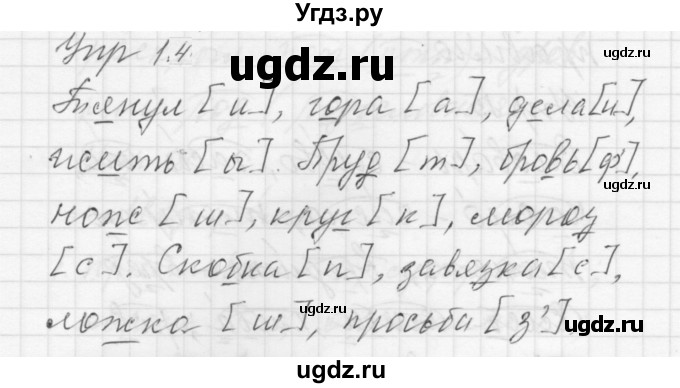 Угдз.ру
Упр 1.4.
ugdz.ru
Тянул [и], гора [а], дела [и],
жить [ы]. Пруд [т], бровь [ф'],
ugdz.ru
нож [ш], круг [к], мороз
[с]. Скобка [п], завязка [с],
ugdz.ru
ложка [ш], просьба [з']
ugdz.ru
ugdz.ru